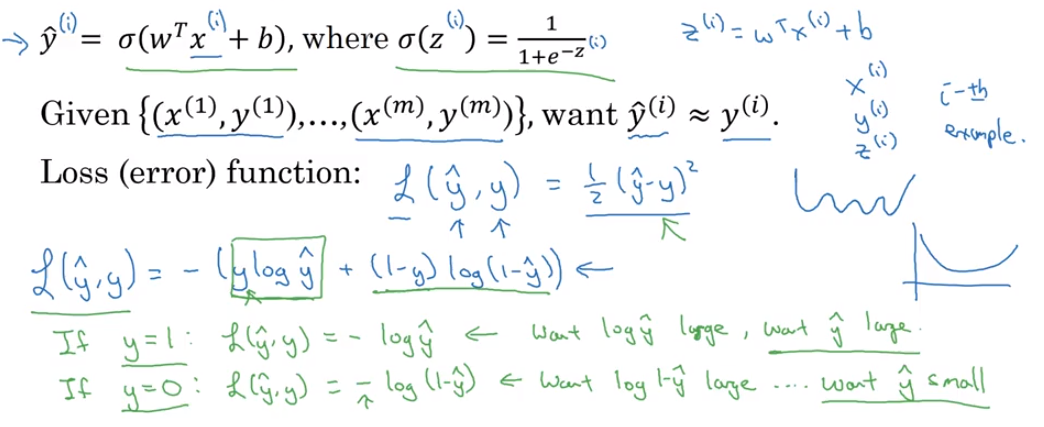 → ŷ⁽ⁱ⁾ = σ(wᵀx⁽ⁱ⁾ + b), where σ(z⁽ⁱ⁾) = 1/(1+e^(-z⁽ⁱ⁾)) z⁽ⁱ⁾ = wᵀx⁽ⁱ⁾ + b
Given {(x⁽¹⁾, y⁽¹⁾),…,(x⁽ᵐ⁾, y⁽ᵐ⁾)}, want ŷ⁽ⁱ⁾ ≈ y⁽ⁱ⁾.
x⁽ⁱ⁾
y⁽ⁱ⁾
z⁽ⁱ⁾
i-th
example.
Loss (error) function: ℒ(ŷ, y) = ½(ŷ-y)²
ℒ(ŷ, y) = - (y log ŷ + (1-y) log(1-ŷ)) ←
If y=1: ℒ(ŷ, y) = - log ŷ ← Want log ŷ large, want ŷ large.
If y=0: ℒ(ŷ, y) = - log (1-ŷ) ← Want log 1-ŷ large .... want ŷ small